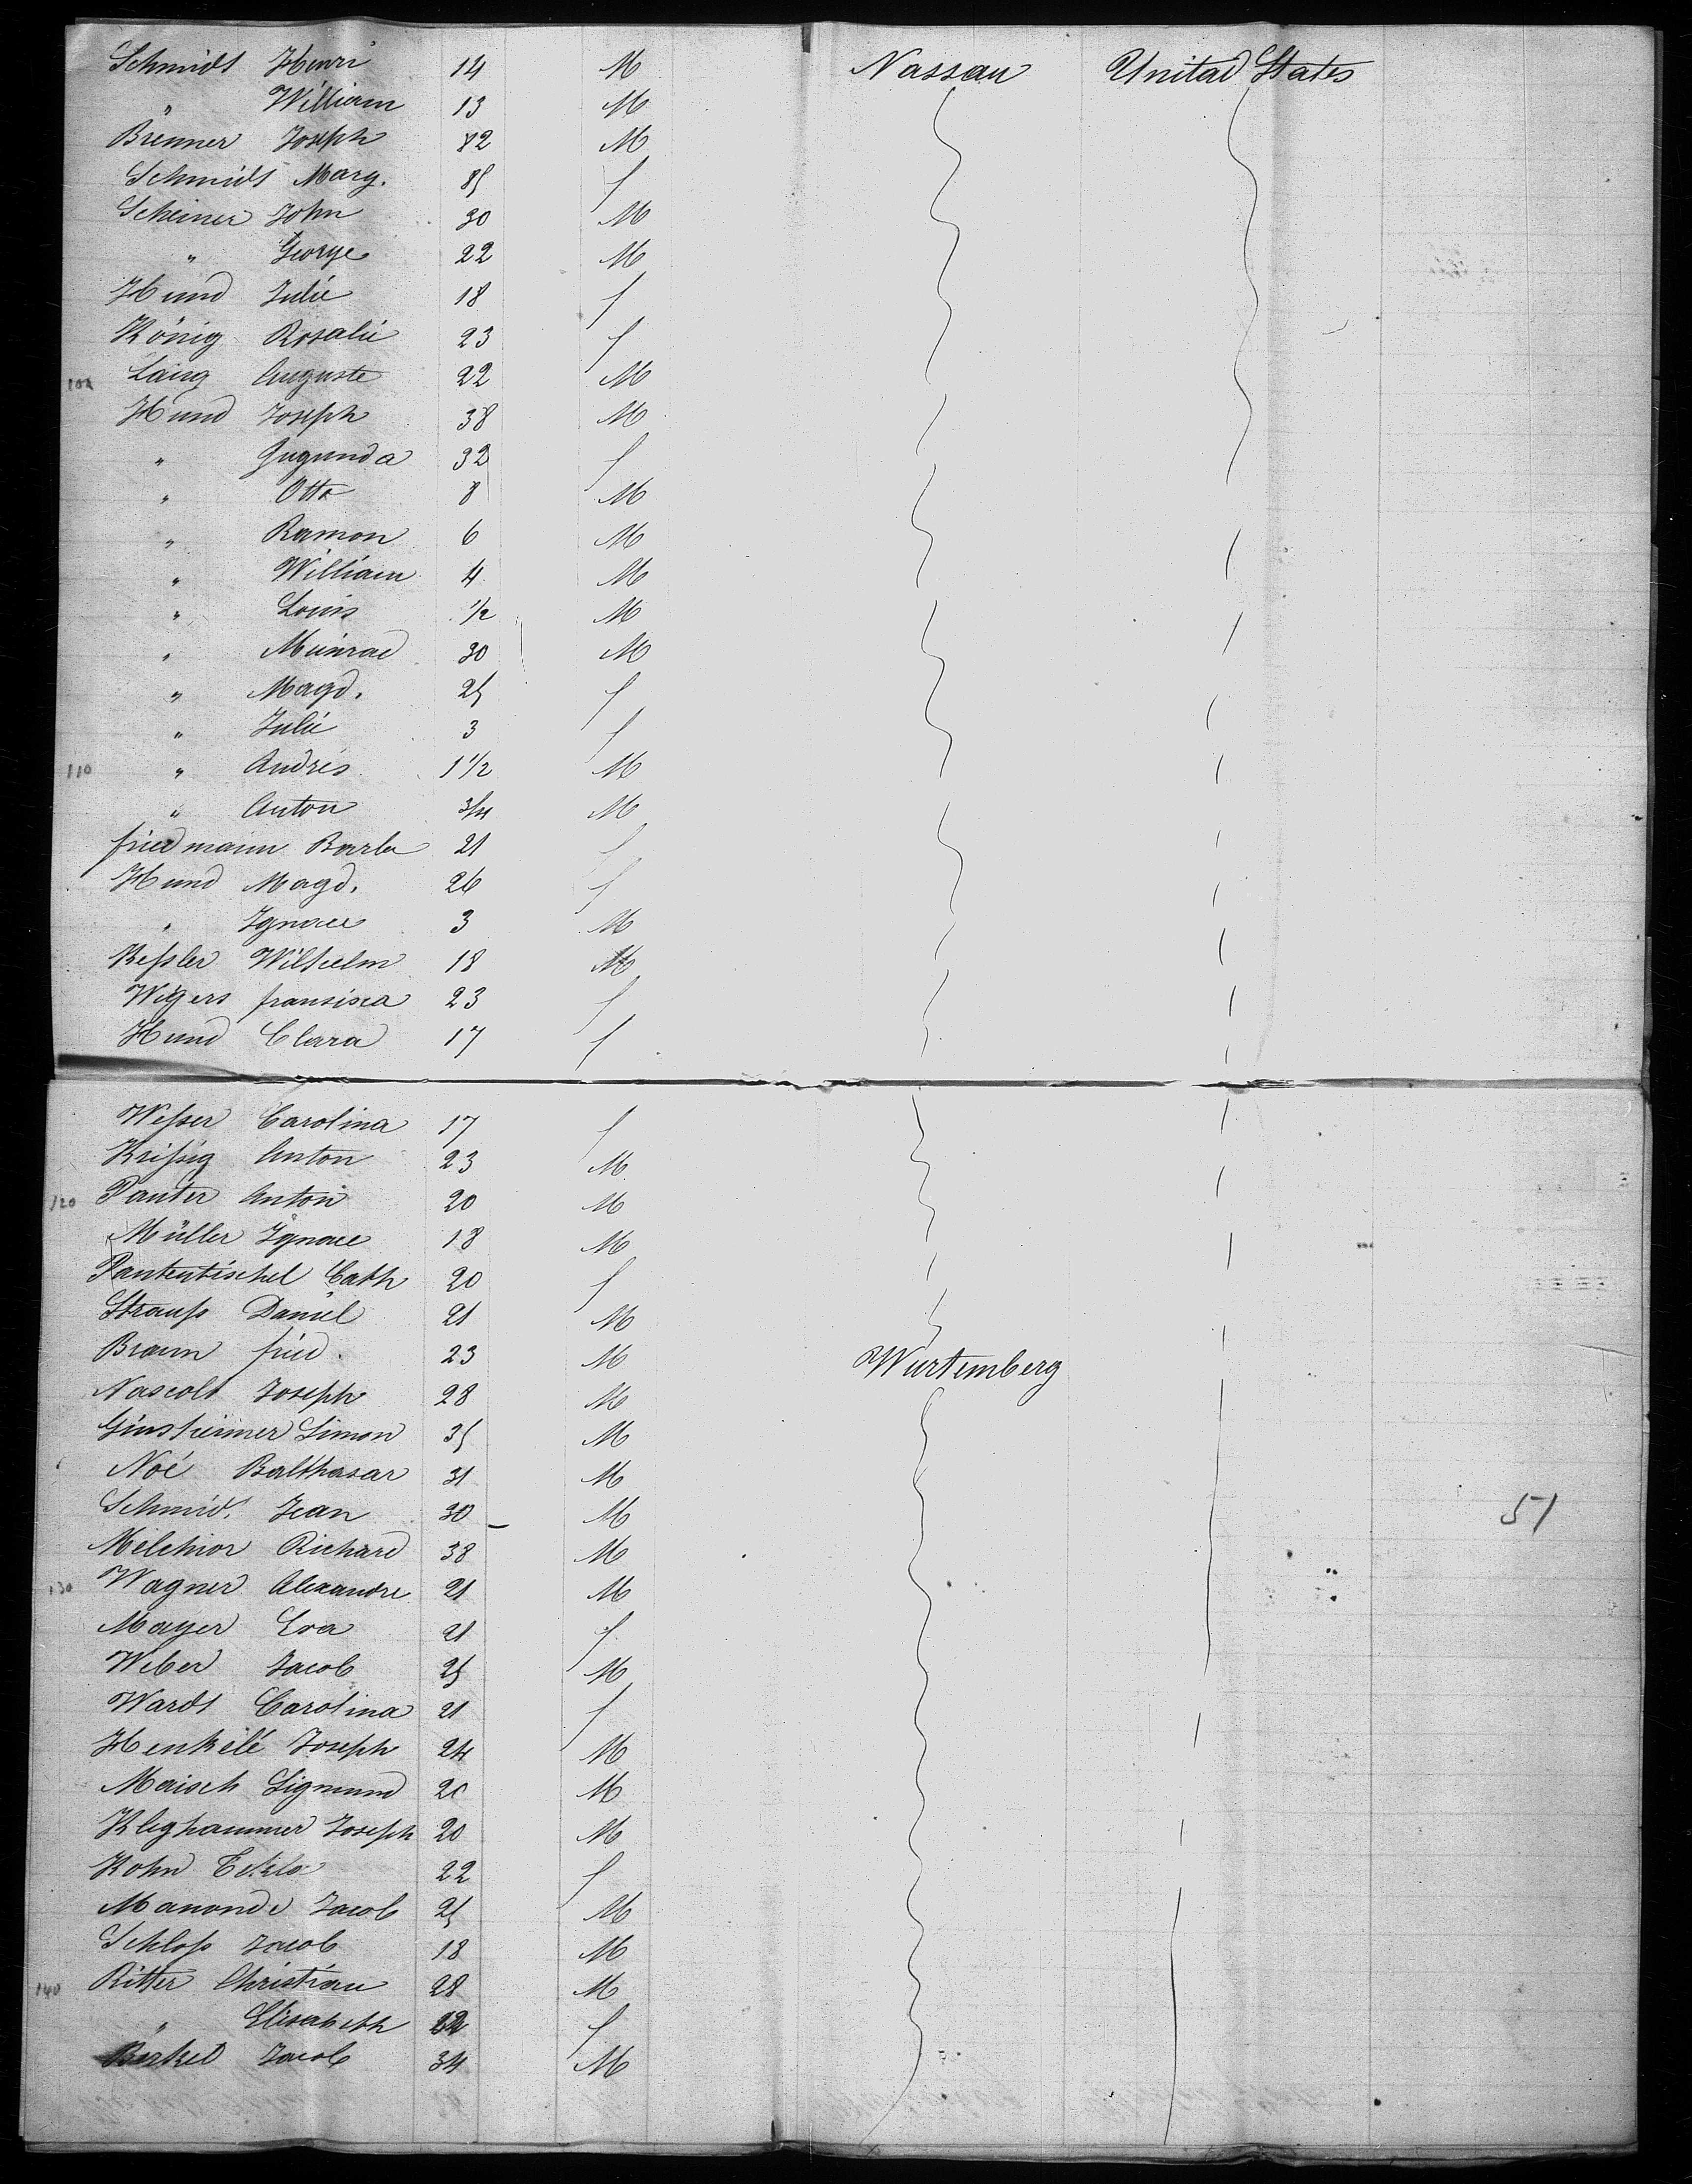 Schmidt Henri 14 M Nassau United States
" William 13 M
Brenner Joseph 82 M
Schmidt Marg. 85 f
Scheiner John 30 M
" George 22 M
Hund Julie 18 f
König Rosalie 23 f
Laing Auguste 22 M
Hund Joseph 38 M
" Gugunda 32 f
" Otto 8 M
" Ramon 6 M
" William 4 M
" Louis 1/2 M
" Meinrad 30 M
" Magd. 25 f
" Julie 3 f
110 " Andrés 1 1/2 M
" Anton 3/4 M
friedmann Barba 21 f
Hund Magd. 26 f
" Ignace 3 M
Keßler Wilhelm 18 M
Wigers fransisca 23 f
Hund Clara 17 f
Weßer Carolina 17 f
Krißig Anton 23 M
120 Panter Anton 20 M
Müller Ignace 18 M
Pantentischel Cath 20 f
Strauß Daniel 21 M
Braun fried. 23 M Wurtemberg
Nascolt Joseph 28 M
Ginsheimer Simon 35 M
Noé Balthasar 31 M
Schmid. Jean 30 M 51
Melchior Richard 38 M
130 Wagner Alexandre 21 M
Mayer Eva 21 f
Weber Jacob 25 M
Wardt Carolina 21 f
Henkélé Joseph 24 M
Maisch Sigmund 20 M
Kleghammer Joseph 20 M
Kohn 22 f
Manonde Jacob 25 M
Schloß Jacob 18 M
140 Ritter Christian 28 M
" Elisabeth 22 f
Berkel Jacob 34 M